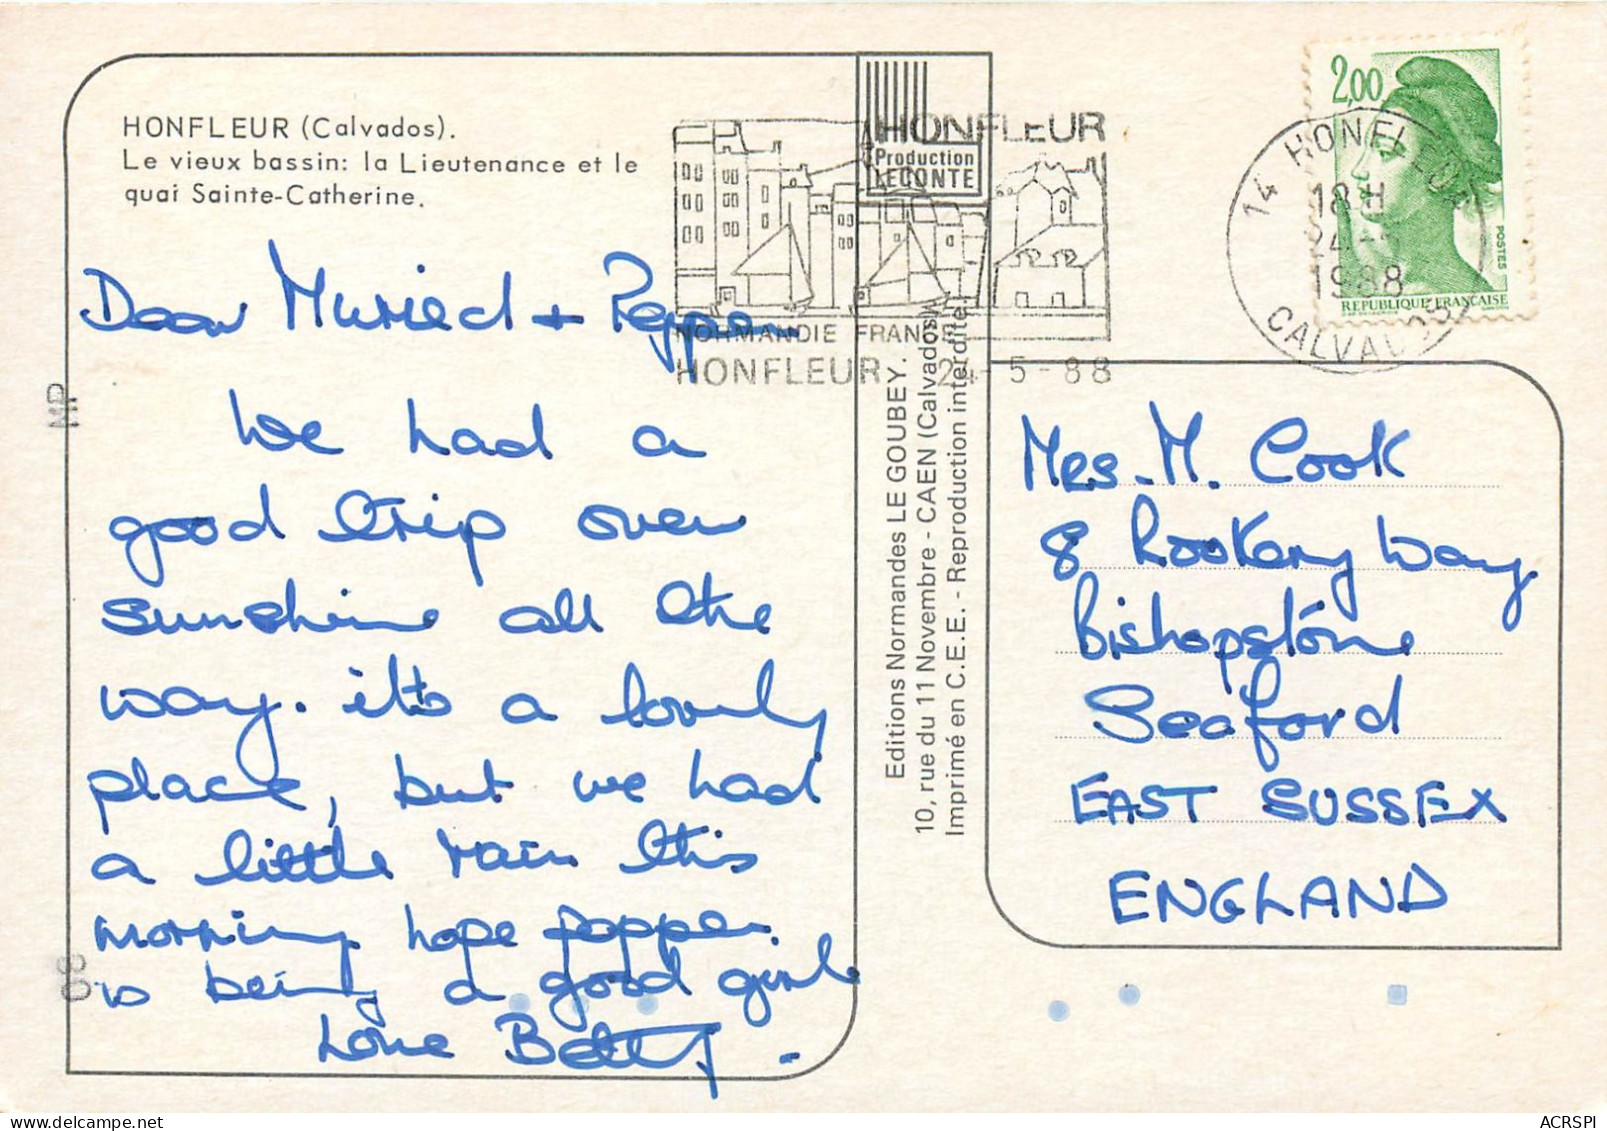 HONFLEUR (Calvados).
Le vieux bassin: la Lieutenance et le
quai Sainte-Catherine.
Production
LECONTE
HONFLEUR
NORMANDIE FRANCE
HONFLEUR 24-5-88
2,00
POSTES
REPUBLIQUE FRANÇAISE
14 HONFLEUR
18 H
24-5
1988
CALVADOS
Dear Muriel + Pepper
We had a
good trip over
sunshine all the
way. it's a lovely
place, but we had
a little rain this
morning hope pepper
is being a good girl
Love Betty.
Editions Normandes LE GOUBEY.
10, rue du 11 Novembre - CAEN (Calvados)
Imprimé en C.E.E. - Reproduction interdite
Mrs. M. Cook
8 Rookery Way
Bishopstone
Seaford
EAST SUSSEX
ENGLAND
MP
08
ACRSPI